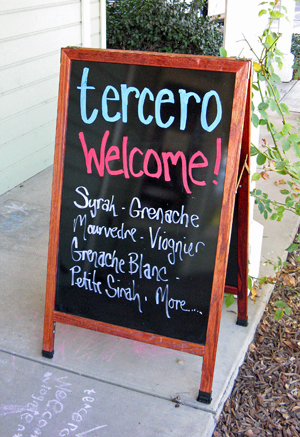 tercero
Welcome!
Syrah - Grenache
Mourvedre - Viognier
Grenache Blanc -
Petite Sirah, More...
Welcome
tercero